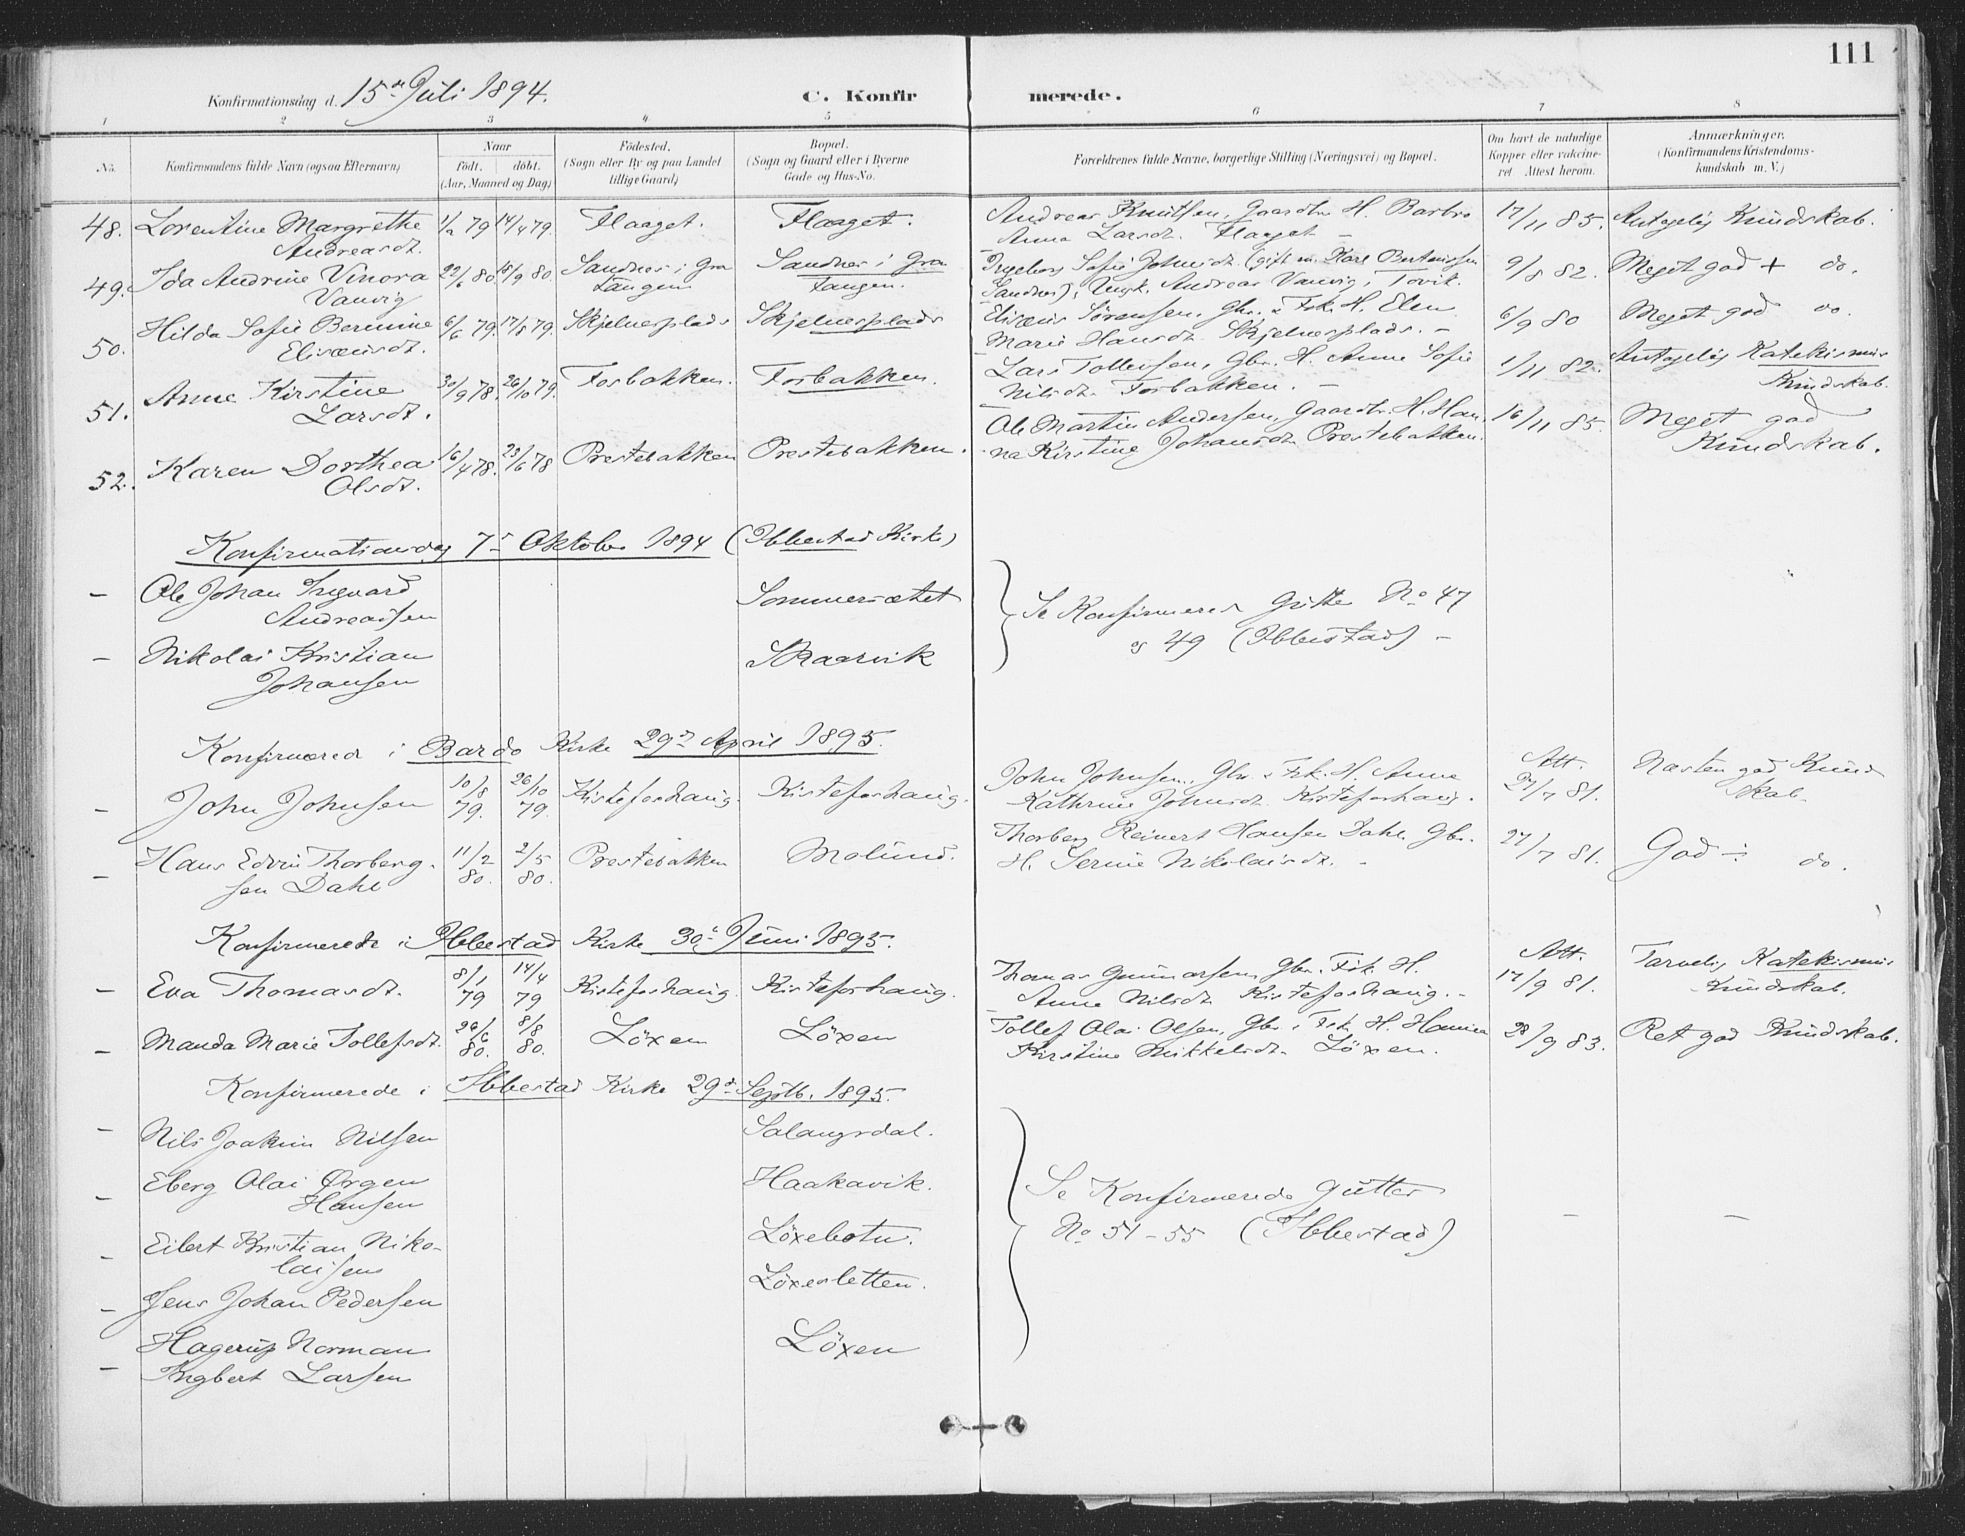 111
Konfirmationsdag d. 15de Juli 1894. C. Konfirmerede.
1 2 3 4 5 6 7 8
No. Konfirmandens fulde Navn (ogsaa Efternavn) Naar født. døbt. (Aar, Maaned og Dag) Fødested. (Sogn eller By og paa Landet tillige Gaard) Bopæl. (Sogn og Gaard eller i Byerne Gade og Hus-No. Forældrenes fulde Navne, borgerlige Stilling (Næringsvei) og Bopæl. Om havt de naturlige Kopper eller vakcineret Attest herom. Anmærkninger. (Konfirmandens Kristendomskundskab m. V.)
48. Lorentine Margrethe 1/2 79 14/4 79. Flaaget. Flaaget. Andreas Knutsen, Gaardbr. H. Barbro 17/11 85. Antagelig Kundskab.
Andreasdt. Anna Larsdt. Flaaget –
49. Ida Andrine Vinora 22/6 80. /9 80. Sandnes i Gra Sandnes i Gra Ingeborg Sofie Johnsdt. (gift m. Karl Bertinussen 9/8 82. Meget god + do.
Vanvig tangen tangen. Sandnes), Ungk. Andreas Vanvig, Tovik.
50. Hilda Sofie Bernine 6/6 79. 17/8 79. Skjelnesplads Skjelnesplads Elisæus Sørensen, Gbr. & Fsk. H. Elen 6/9 80 Meget god do.
Elisæusdt. Marie Hansdt. Skjelnesplads. –
51. Anne Kirstine 30/9 78. 26/10 79. Fosbakken. Fosbakken. Lars Tollefsen, Gbr. H. Anne Sofie 1/11 82. Antagelig Katekismus
Larsdt. Nilsdt. Fosbakken. – Kundskab.
52. Karen Dorthea 16/4 78. 23/6 78 Prestebakken Prestebakken. Ole Martin Andersen, Gaardbr. H. Han 16/11 85. Meget god
Olsdt. na Kirstine Johansdt. Prestebakken. Kundskab.
Konfirmationsdag 7de Oktober 1894 (Ibbestad Kirke)
– Ole Johan Ingvard Sommersætet Se Konfirmerede Gutter No 47
Andreassen og 49 (Ibbestad) –
– Nikolai Kristian Skaarvik
Johansen
Konfirmered i Bardo Kirke 29de April 1895.
– John Johnsen 10/8 79. 26/10 79. Kistefoshaug. Kistefoshaug. John Johnsen, Gbr. & Fsk. H. Anne Att. 27/7 81. Næsten god Kund
Kathrine Johnsdt. Kistefoshaug. skab.
– Hans Edvin Thorberg- 11/2 80. 2/5 80. Prestebakken Molund. Thorberg Reinert Hansen Dahl Gbr. 27/7 81. God ÷ do.
sen Dahl H. Serine Nikolaisdt. –
Konfirmerede i Ibbestad Kirke 30de Juni 1895.
– Eva Thomasdt. 8/1 79 14/4 79 Kistefoshaug. Kistefoshaug. Thomas Gunnarsen, Gbr. Fsk. H. Att. 17/9 81. Tarvelig Katekismus
Anne Nilsdt. Kistefoshaug. – Kundskab.
– Manda Marie Tollefsdt. 26/6 80. 8/8 80. Löxen Löxen Tollef Olai Olsen, Gbr. & Fsk. H. Hanna 28/9 83. Ret god Kundskab.
Kirstine Mikkelsdt. Löxen.
Konfirmerede i Ibbestad Kirke 29de Septb. 1895.
– Nils Joakim Nilsen Salangsdal.
– Eberg Olai Ørgen Haakavik. Se Konfirmerede Gutter
Hansen No 51–55 (Ibbestad) – –
– Eilert Kristian Niko- Löxebotn.
laisen
– Jens Johan Pedersen Löxesletten.
– Hagerup Norman Löxen
Ingbert Larsen